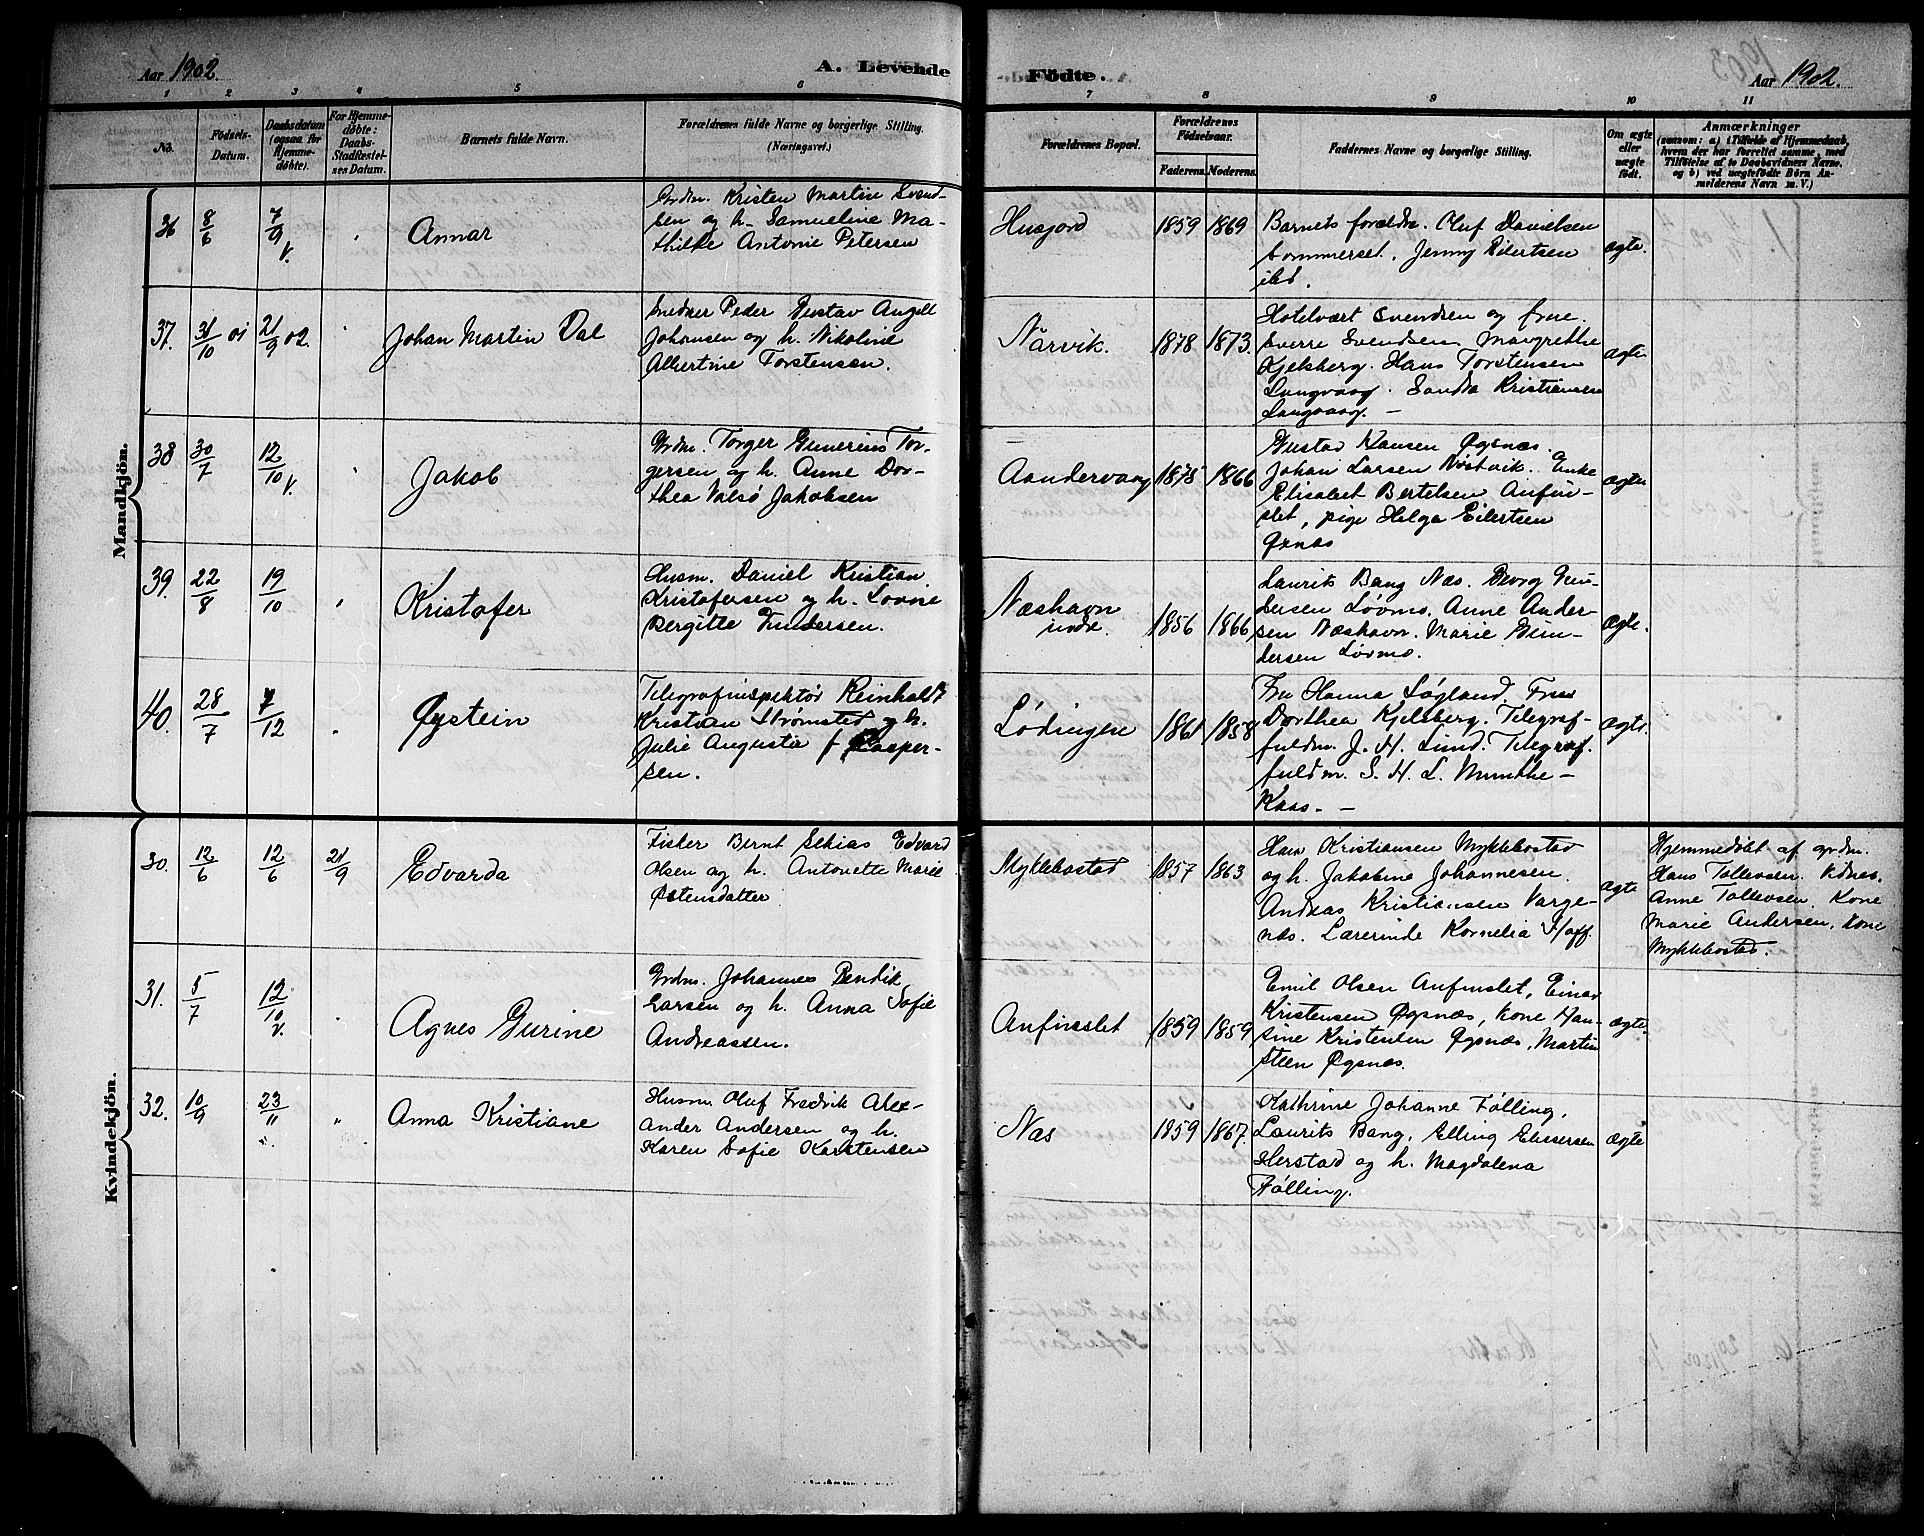 Aar 1902
A. Levende
Födte.
Aar 1902.
1 2 3 4 5 6 7 8 9 10 11
No.
Födsels-
Datum.
Daabsdatum
(ogsaa for
Hjemme-
döbte).
For Hjemme-
døbte:
Daabs-
Stadfæstel-
ses Datum.
Barnets fulde Navn.
Forældrenes fulde Navne og borgerlige Stilling.
(Næringsvei.)
Forældrenes Bopæl.
Forældrenes
Födselsaar.
Faderens. Moderens.
Faddernes Navne og borgerlige Stilling.
Om ægte
eller
uægte
födt.
Anmærkninger
(saasom: a) i Tilfælde af Hjemmedaab,
hvem der har forrettet samme, med
Tilföielse af to Daabsvidners Navne,
og b) ved uægtefödte Börn An-
melderens Navn m. V.)
Mandkjön.
36 8/6 7/9 v. Annar
Grdm. Kristen Martin Svend-
sen og h. Samueline Ma-
thilde Antonie Petersen
Husjord 1859 1869
Barnets forældre. Oluf Danielsen
Sommerset. Jenny Eilertsen
ibd.
ægte.
37. 31/10 01 21/9 02. Johan Martin Dal
Snedker Peder Gustav Angell
Johansen og h. Nikoline
Albertine Torstensen.
Narvik. 1878 1873.
Hotelvært Svendsen og frue.
Sverre Svendsen, Margrethe
Kjelsberg. Hans Torstensen
Langvaag. Sandra Kristiansen
Langvaag. —
ægte
38 30/7 12/10 v. Jakob
Grdm. Torger Gunerius Tor-
gersen og h. Anne Dor-
thea Valsø Jakobsen
Aandervaag 1875 1866
Gustav Hansen Øgsnæs.
Johan Larsen Nøstvik. Enke
Elisabet Bertelsen Anfin-
slet, pige Helga Eilertsen
Øxnæs
ægte
39. 22/8 19/10 Kristofer
Husm. Daniel Kristian
Kristofersen og h. Lovne
Bergitte Gundersen.
Næshavn
indre. 1856 1866
Laurits Bang Næs. Georg Gun-
dersen Løvmo. Anne Ander-
sen Næshavn. Marie Gun-
dersen Løvmo.
ægte.
40. 28/7 7/12 Øystein
Telegrafinspektør Reinholdt
Kristian Strømsted og h.
Julie Augusta f. Casper-
sen.
Lødingen 1861 1858
Fru Hanna Løgland. Frue
Dorthea Kjelsberg. Telegraf-
fuldm. J. H. Lund. Telegraf-
fuldm. S. H. L. Munthe-
Kaas. —
ægte.
Kvindekjön.
30. 12/6 12/6 21/9 Edvarda
Fisker Bernt Sekias Edvard
Olsen og h. Antonette Marie
Østensdatter
Myklebostad 1857 1863
Hans Kristiansen Myklebostad
og h. Jakobine Johannesen.
Andreas Kristiansen Varge-
næs. Lærerinde Kornelia Hoff.
ægte
Hjemmedøbt af grdm.
Hans Tollevsen.
Anne Tollevsen. Kone
Marie Andersen, kone
Myklebostad.
31. 5/7 12/10 v. Agnes Gurine
Grdm. Johannes Bendik
Larsen og h. Anna Sofie
Andreassen.
Anfinslet 1859 1859
Emil Olsen Anfinslet, Einar
Kristensen Øgsnæs, kone Han-
sine Kristensen Øgsnæs, Martin
Steen Øgsnæs.
ægte.
32. 10/9 23/11 " Anna Kristiane
Husm. Oluf Fredrik Alex-
ander Andersen og h.
Karen Sofie Karstensen
Næs 1859 1867.
Kathrine Johanne Følling,
Laurits Bang, Elling Eliesersen
Herstad og h. Magdalena
Følling.
ægte